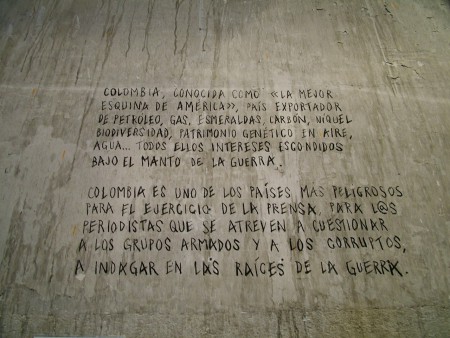 COLOMBIA, CONOCIDA COMO «LA MEJOR
ESQUINA DE AMÉRICA», PAÍS EXPORTADOR
DE PETRÓLEO, GAS, ESMERALDAS, CARBÓN, NIQUEL
BIODIVERSIDAD, PATRIMONIO GENÉTICO EN AIRE,
AGUA... TODOS ELLOS INTERESES ESCONDIDOS
BAJO EL MANTO DE LA GUERRA.
COLOMBIA ES UNO DE LOS PAÍSES MAS PELIGROSOS
PARA EL EJERCICIO DE LA PRENSA, PARA L@S
PERIODISTAS QUE SE ATREVEN A CUESTIONAR
A LOS GRUPOS ARMADOS Y A LOS CORRUPTOS,
A INDAGAR EN LAS RAÍCES DE LA GUERRA.